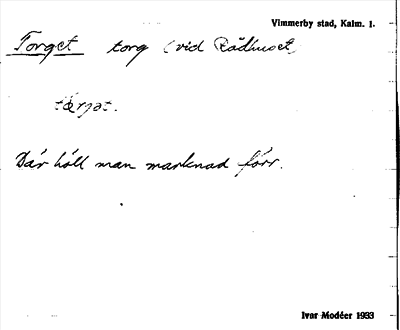 Vimmerby stad, Kalm. 1.
Torget torg (vid Rådhuset)
Där höll man marknad förr.
Ivar Modéer 1933